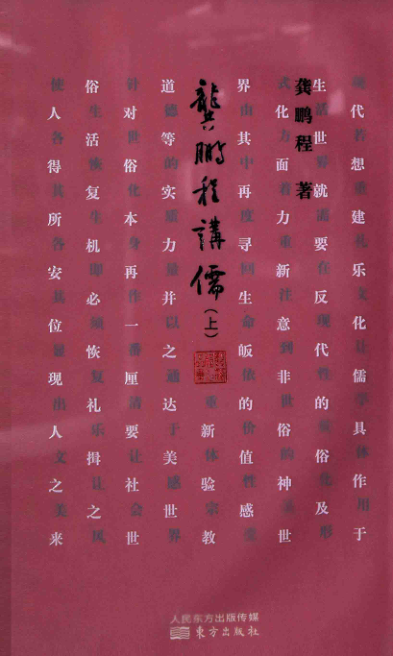 现代若想重建礼乐文化让儒学具体作用于
生活世界就需要在反现代性的世俗化及形
龚鹏程 著
式化方面着力重新注意到非世俗的神圣世
界由其中再度寻回生命皈依的价值性感受
龔鵬程講儒(上)
重新体验宗教
道德等的实质力量并以之通达于美感世界
针对世俗化本身再作一番厘清要让社会世
俗生活恢复生机即必须恢复礼乐揖让之风
使人各得其所各安其位显现出人文之美来
人民东方出版传媒
東方出版社